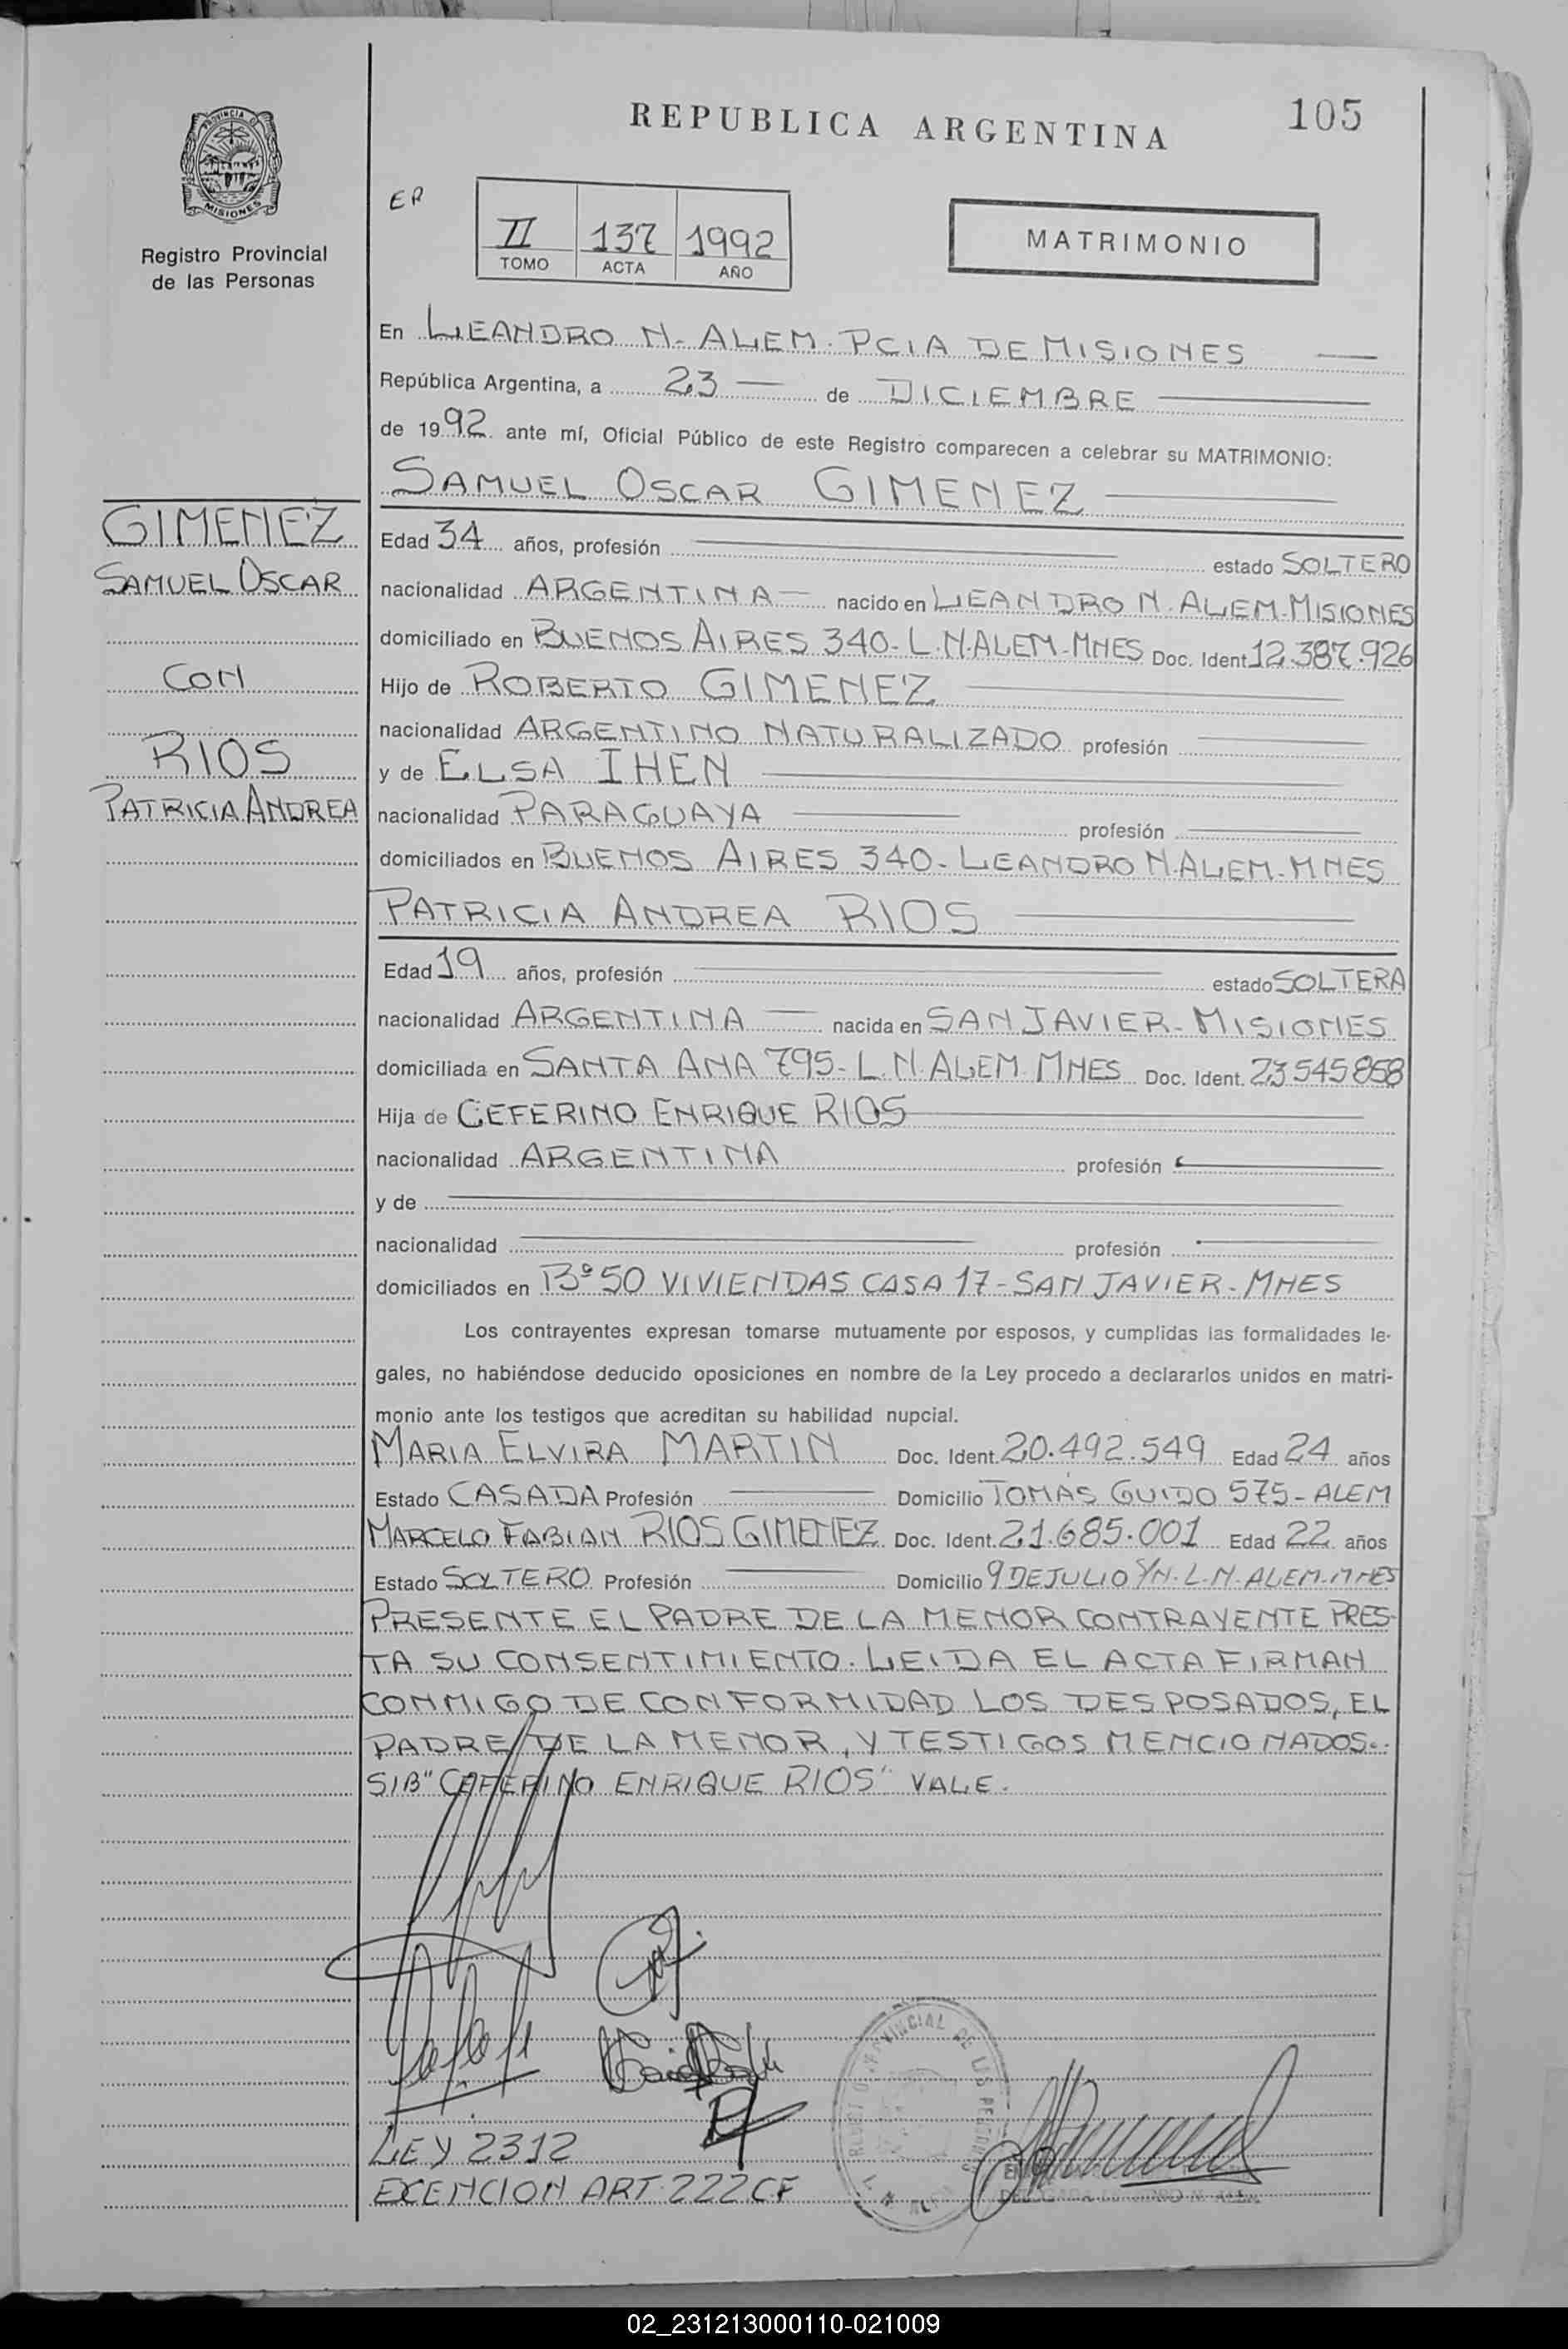 REPUBLICA ARGENTINA
105
PROVINCIA DE
MISIONES
Registro Provincial
de las Personas
EP
II 137 1992
TOMO ACTA AÑO
MATRIMONIO
En LEANDRO N. ALEM. PCIA DE MISIONES
República Argentina, a 23 de DICIEMBRE
de 1992 ante mí, Oficial Público de este Registro comparecen a celebrar su MATRIMONIO:
SAMUEL OSCAR GIMENEZ
GIMENEZ
SAMUEL OSCAR
CON
RIOS
PATRICIA ANDREA
Edad 34 años, profesión estado SOLTERO
nacionalidad ARGENTINA nacido en LEANDRO N. ALEM-MISIONES
domiciliado en BUENOS AIRES 340- L.N.ALEM-MNES Doc. Ident 12.387.926
Hijo de ROBERTO GIMENEZ
nacionalidad ARGENTINO NATURALIZADO profesión
y de ELSA IHEN
nacionalidad PARAGUAYA profesión
domiciliados en BUENOS AIRES 340- LEANDRO N.ALEM-MNES
PATRICIA ANDREA RIOS
Edad 19 años, profesión estado SOLTERA
nacionalidad ARGENTINA nacida en SAN JAVIER- MISIONES
domiciliada en SANTA ANA 795- L.N.ALEM MNES Doc. Ident. 23545858
Hija de CEFERINO ENRIQUE RIOS
nacionalidad ARGENTINA profesión
y de
nacionalidad profesión
domiciliados en Bº 50 VIVIENDAS CASA 17-SAN JAVIER-MNES
Los contrayentes expresan tomarse mutuamente por esposos, y cumplidas las formalidades le-
gales, no habiéndose deducido oposiciones en nombre de la Ley procedo a declararlos unidos en matri-
monio ante los testigos que acreditan su habilidad nupcial.
MARIA ELVIRA MARTIN Doc. Ident. 20.492.549 Edad 24 años
Estado CASADA Profesión Domicilio TOMÁS GUIDO 575-ALEM
MARCELO FABIAN RIOS GIMENEZ Doc. Ident. 21.685.001 Edad 22 años
Estado SOLTERO Profesión Domicilio 9 DE JULIO S/N. L.N. ALEM-MNES
PRESENTE EL PADRE DE LA MENOR CONTRAYENTE PRES-
TA SU CONSENTIMIENTO. LEIDA EL ACTA FIRMAN
CONMIGO DE CONFORMIDAD LOS DESPOSADOS, EL
PADRE DE LA MENOR, Y TESTIGOS MENCIONADOS.-
S/B "CEFERINO ENRIQUE RIOS" VALE.
LEY 2312
EXENCION ART. 222 CF
02_231213000110-021009